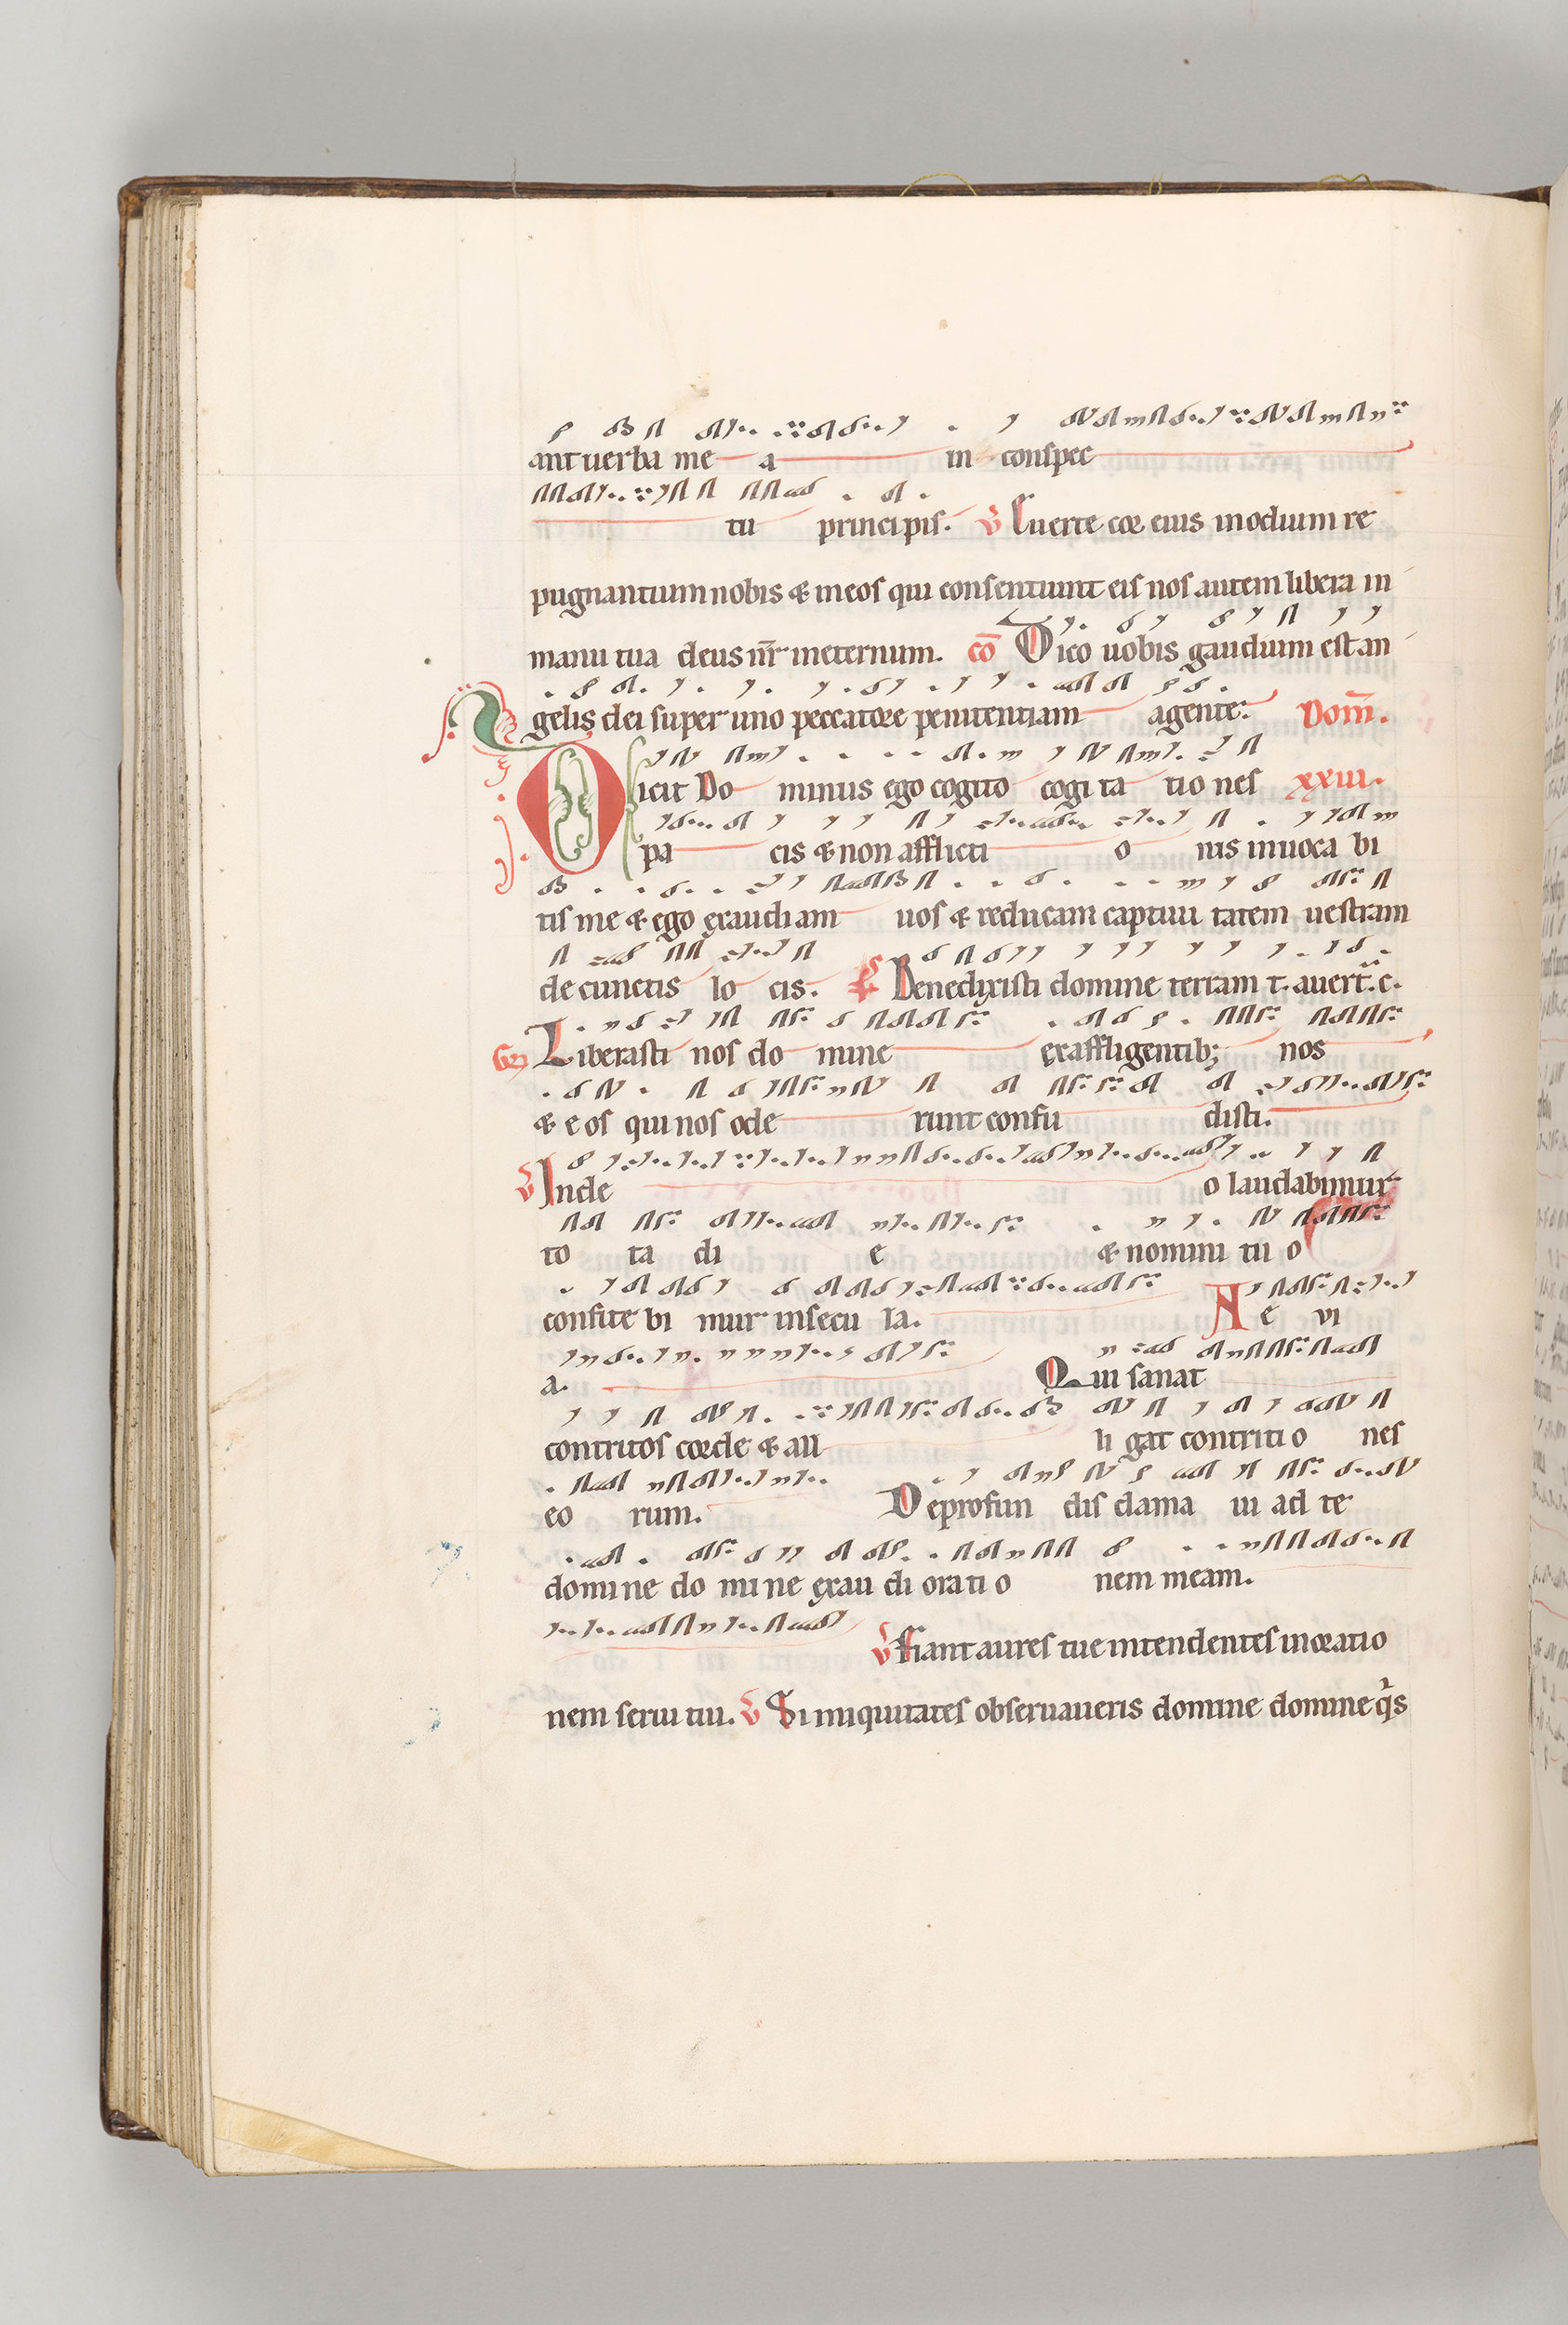 ant uerba me a in conspec
tu principis. V Euerte cor eius in odium re
pugnantium nobis & in eos qui consentiunt eis nos autem libera in
manu tua deus nr̄ in eternum. cō Dico uobis gaudium est an
gelis dei super uno peccatore penitentiam agente. Dom̄.
Dicit Do minus ego cogito cogi ta tio nes xxiii.
pa cis & non afflicti o nis inuoca bi
tis me & ego exaudiam uos & reducam captiui tatem uestram
de cunctis lo cis. Benedixisti domine terram t. auert. c.
Gr Liberasti nos do mine ex affligentib; nos
& e os qui nos ode runt confu disti.
V In de o laudabimur
to ta di e & nomini tu o
confite bi mur in secu la. A e vi
a. Qui sanat
contritos corde & alli gat contriti o nes
eo rum. De profun dis clama ui ad te
domi ne do mi ne exau di orati o nem meam.
V Fiant aures tue intendentes in oratio
nem serui tui. V Si iniquitates obseruaueris domine domine q̇s